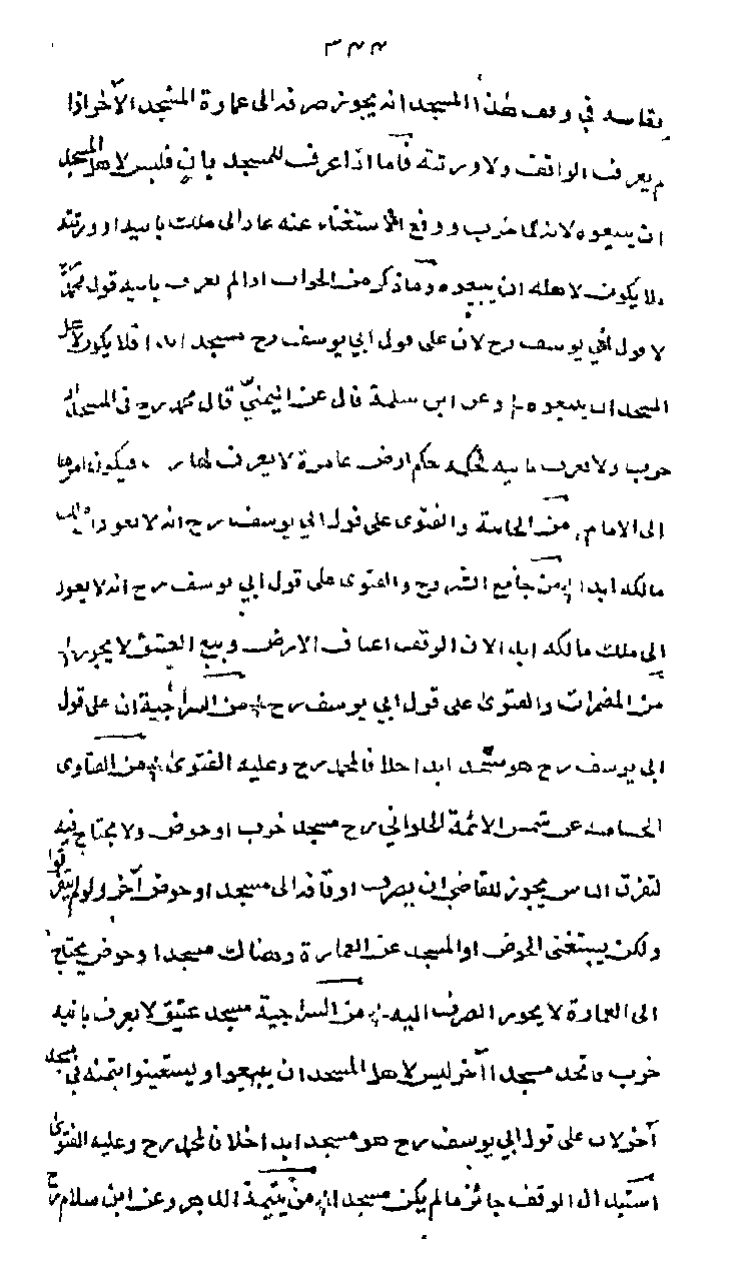 ٣٤٤
بقاسه في وقف هذا المسجد انه يجوز صرفه الى عمارة المسجد الآخر اذا
لم يعرف الواقف ولا ورثته فاما اذا عرف للمسجد بانٍ فليس لاهل المسجد
ان يبيعوه لانه لما خرب ووقع الاستغناء عنه عاد الى ملك بانيه او ورثته
فلا يكون لاهله ان يبيعوه وما ذكر من الجواب اذا لم يعرف بانيه قول محمد رح
لا قول ابي يوسف رح لان على قول ابي يوسف رح مسجد ابدا فلا يكون لاهل
المسجد ان يبيعوه وعن ابن سلمة قال عن قال محمد رح في المسجد اذا
خرب ولا يعرف بانيه حكم ارض عامرة لا يعرف لها فيكون امرها
الى الامام من والفتوى على قول ابي يوسف رح انه لا يعود الى ملك
مالكه ابدا من جامع الشروح والفتوى على قول ابي يوسف رح انه لا يعود
الى ملك مالكه ابدا لان الوقف اعتاق الارض وبيع العتيق لا يجوز
من المضمرات والفتوى على قول ابي يوسف رح من السراجية ان على قول
ابي يوسف رح هو مسجد ابدا خلافا لمحمد رح وعليه الفتوى من الفتاوى
عن شمس الائمة الحلواني رح مسجد خرب او حوض ولا يحتاج فيه
لتفرق الناس يجوز للقاضي ان يصرف اوقافه الى مسجد او حوض آخر ولو لم يتفرقوا
ولكن يستغنى الحوض او المسجد عن العمارة وهناك مسجد او حوض يحتاج
الى العمارة لا يجوز الصرف اليه من السراجية مسجد عتيق لا يعرف بانيه
خرب فاتخذ مسجدا آخر ليس لاهل المسجد ان يبيعوا ويستعينوا بثمنه في مسجد
آخر لان على قول ابي يوسف رح هو مسجد ابدا خلافا لمحمد رح وعليه الفتوى
استبدال الوقف جائز ما لم يكن مسجدا من يتيمة الدهر وعن ابن سلام رح